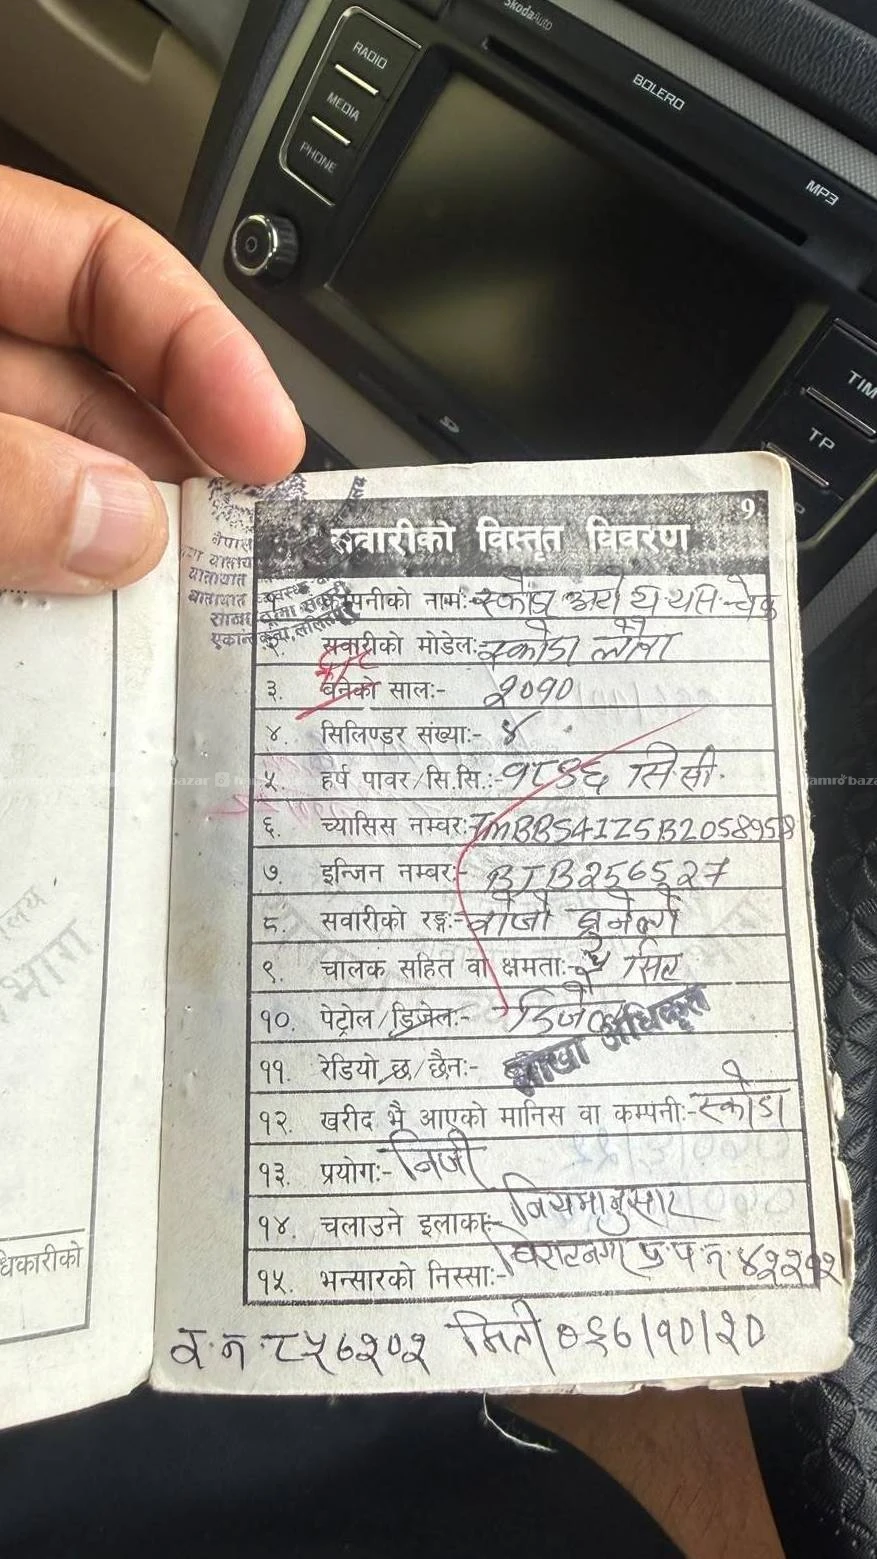 SkodaAuto
BOLERO
MP3
RADIO
MEDIA
PHONE
TIM
TP
9
सवारीको विस्तृत विवरण
नेपाल
यातायात
१. कम्पनीको नाम:- स्कोडा अटो
२. सवारीको मोडेल:- स्कोडा लौरा
३. बनेको साल:- २०१०
४. सिलिण्डर संख्या:- ४
५. हर्ष पावर/सि.सि.:- १९६८ सि.सी.
६. च्यासिस नम्बर:- TMBBS41Z5B2058958
७. इन्जिन नम्बर:- BJB256527
८. सवारीको रङ्ग:-
९. चालक सहित वा क्षमता:- सिट
१०. पेट्रोल/डिजेल:- डिजेल
शाखा अधिकृत
११. रेडियो छ/छैन:-
१२. खरीद भै आएको मानिस वा कम्पनी:- स्कोडा
१३. प्रयोग:- निजी
१४. चलाउने इलाका:- नियमानुसार
१५. भन्सारको निस्सा:- विराटनगर प्र.प.न. ४२२१२
र.न. ८५७२०२ मिति ०६७/१०/२०
धिकारीको
amrobazar